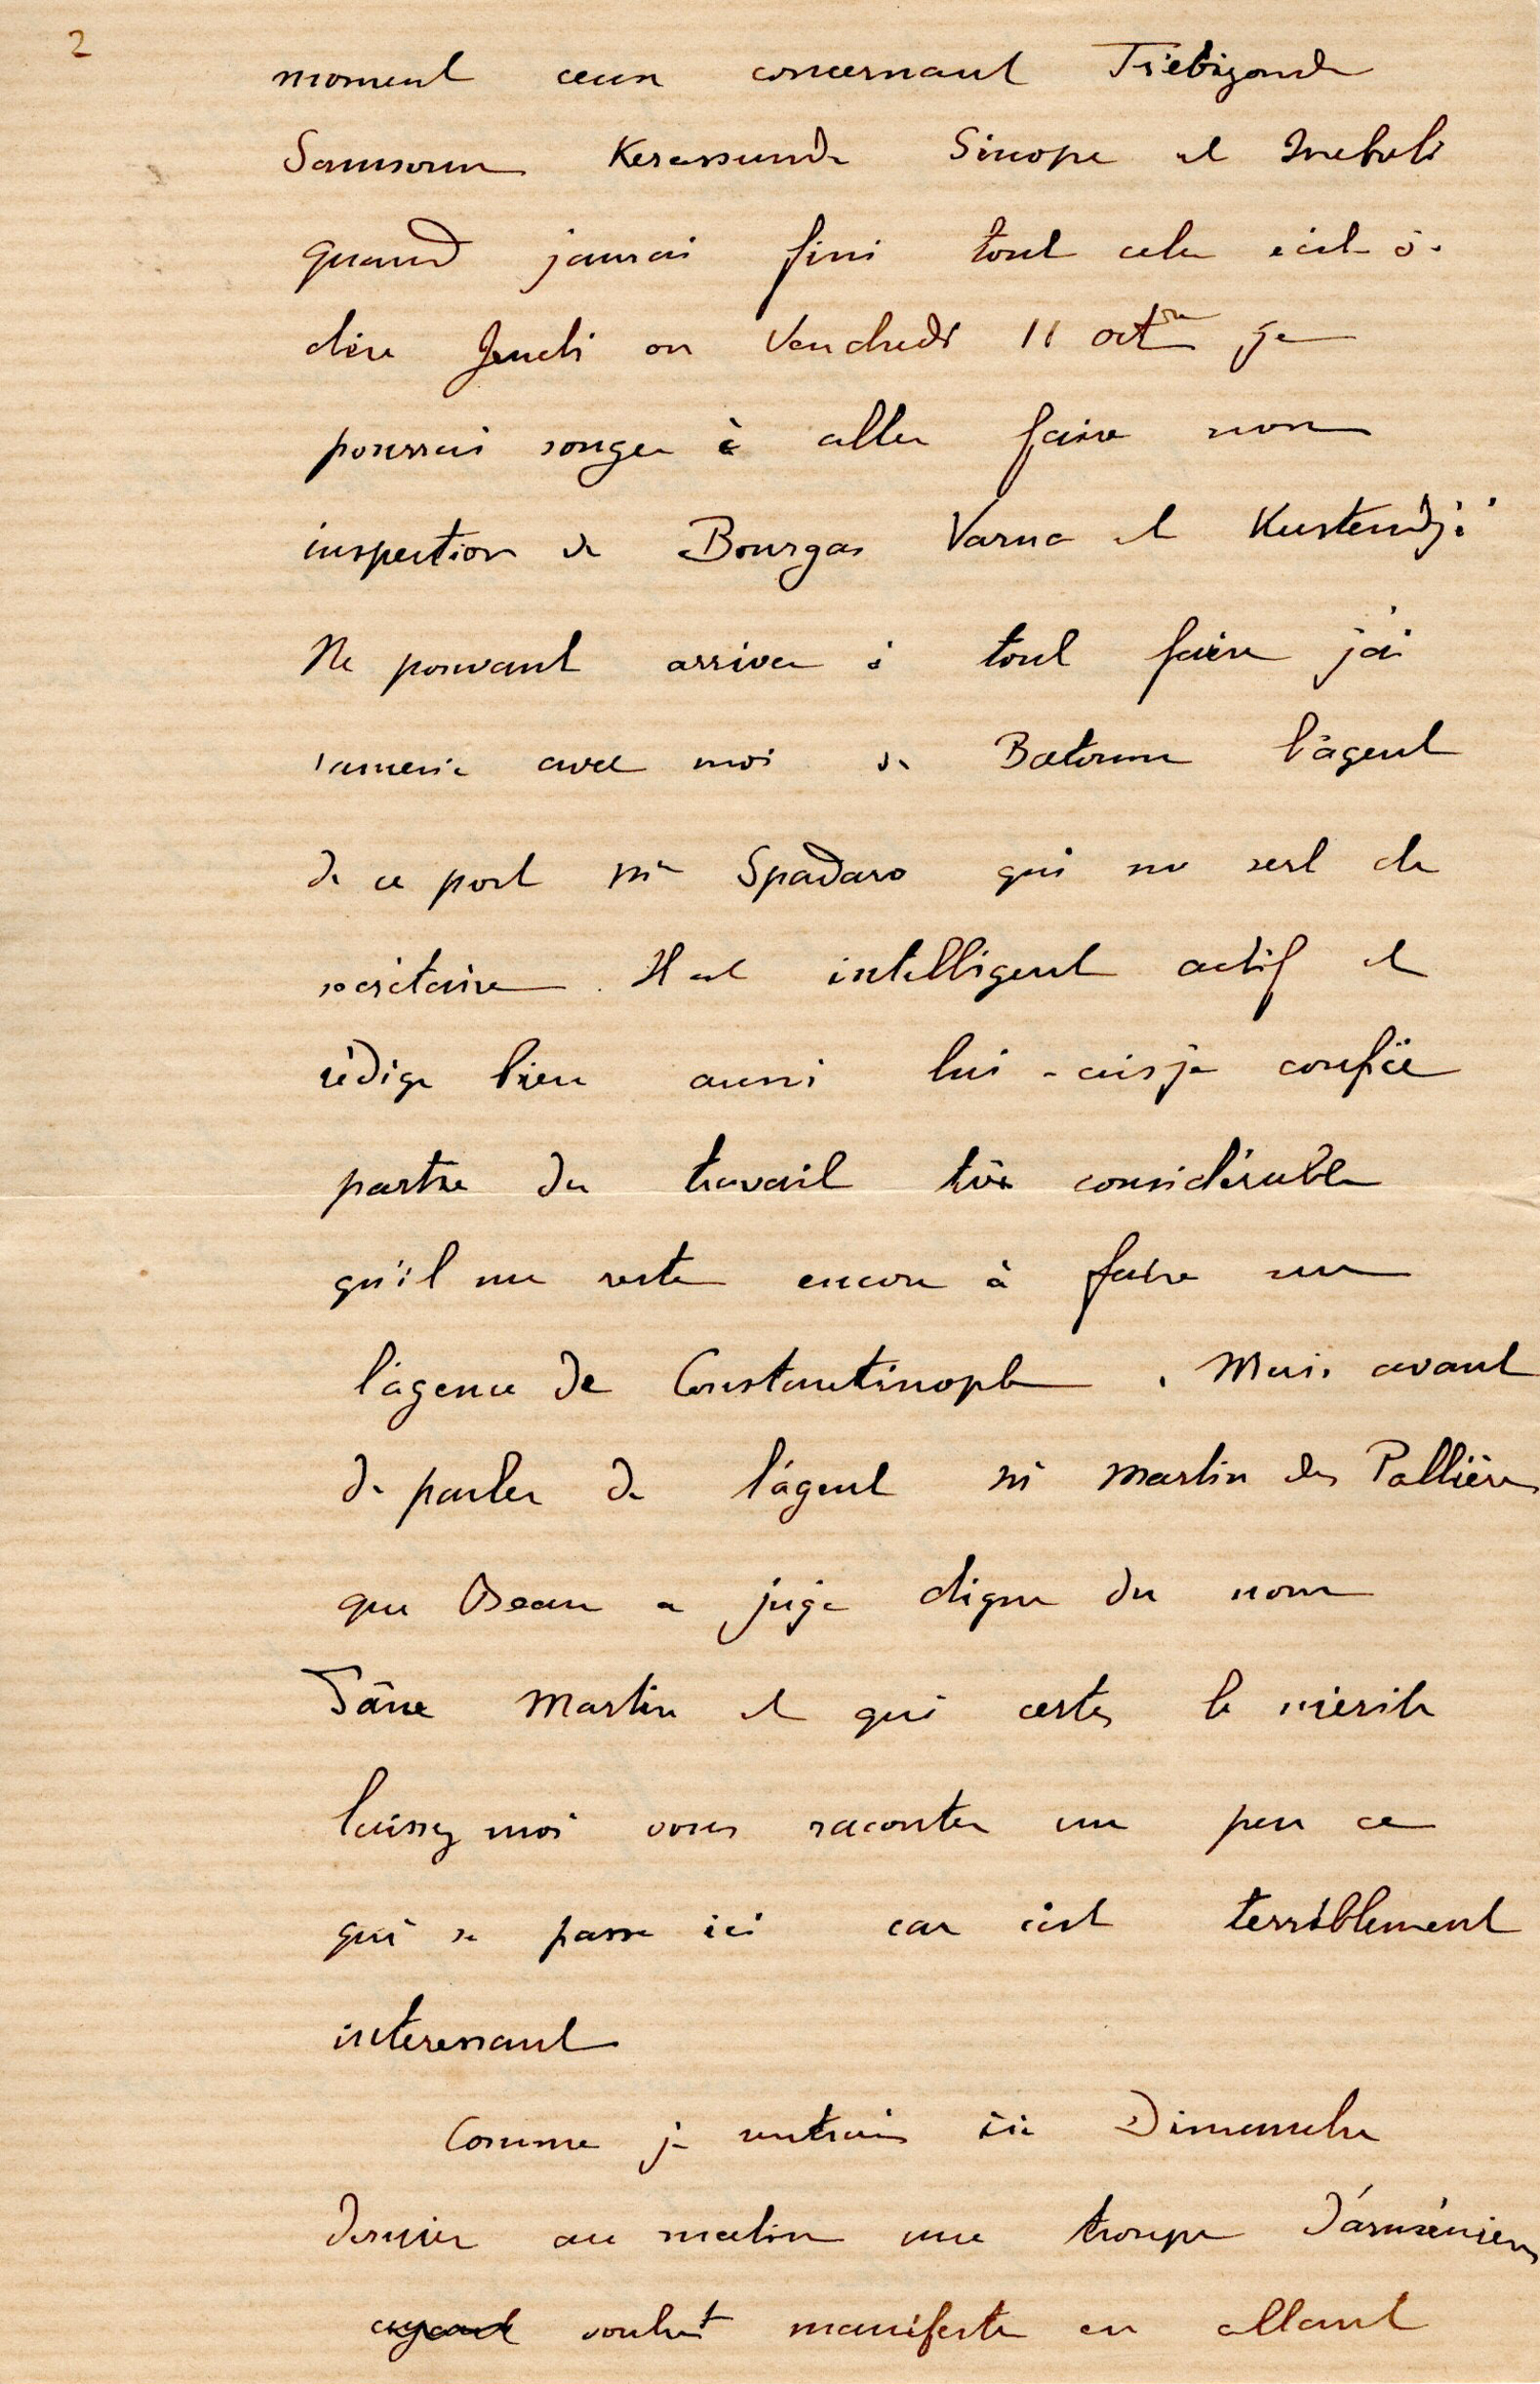 2
moment ceux concernant Trébizonde
Samsoun Kerassunde Sinope et Ineboli
quand j'aurai fini tout cela c'est à
dire Jeudi ou Vendredi 11 octbre je
pourrai songer à aller faire mon
inspection de Bourgas Varna et Kustendjé
Ne pouvant arriver à tout faire j'ai
ramené avec moi de Batoum l'agent
de ce port Mr Spadaro qui me sert de
secrétaire. Il est intelligent actif et
rédige bien aussi lui-ai-je confié
partie du travail très considérable
qu'il me reste encore à faire sur
l'agence de Constantinople. Mais avant
de parler de l'agent Mr Martin des Pallières
que Beau a jugé digne du nom
d'âne Martin et qui certes le mérite
laissez moi vous raconter un peu ce
qui se passe ici car c'est terriblement
interessant
Comme je rentrais ici Dimanche
dernier au matin une troupe d'arméniens
ayant voulut manifester en allant